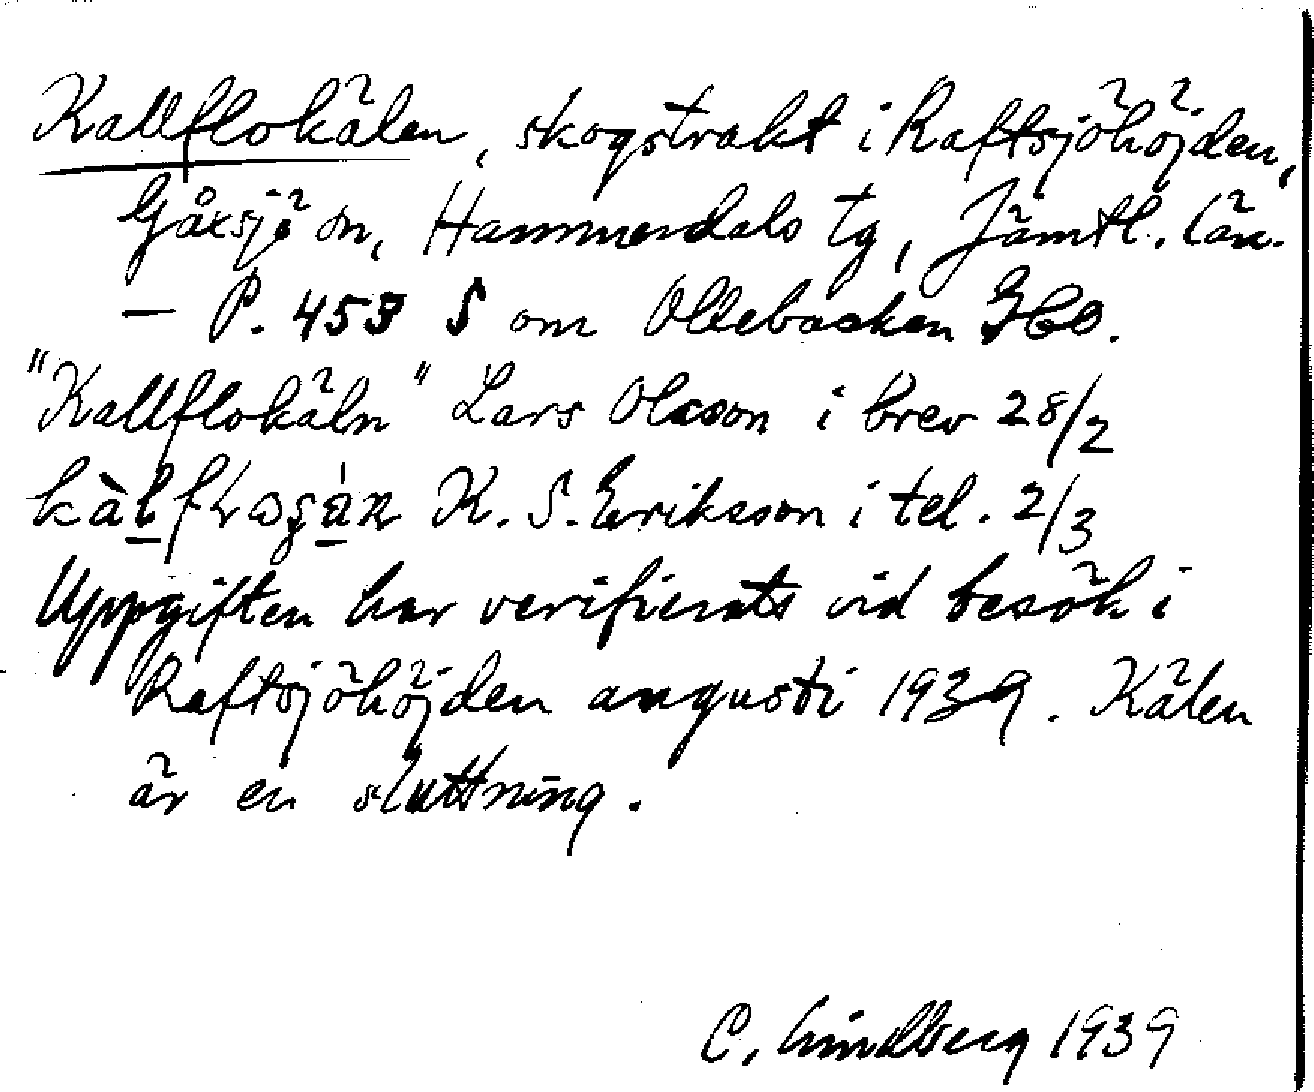 Kallflokälen, skogstrakt i Raftsjöhöjden,
Gåxsjö sn, Hammerdals tg, Jämtl. län.
— P. 453 S om Ollebacken
"Kallflokäln" Lars Olsson i brev 28/2
K. S. Eriksson i tel. 2/3
Uppgiften har verifierats vid besök i
Raftsjöhöjden augusti 1939. Kälen
är en sluttning.
C. Lindberg 1939